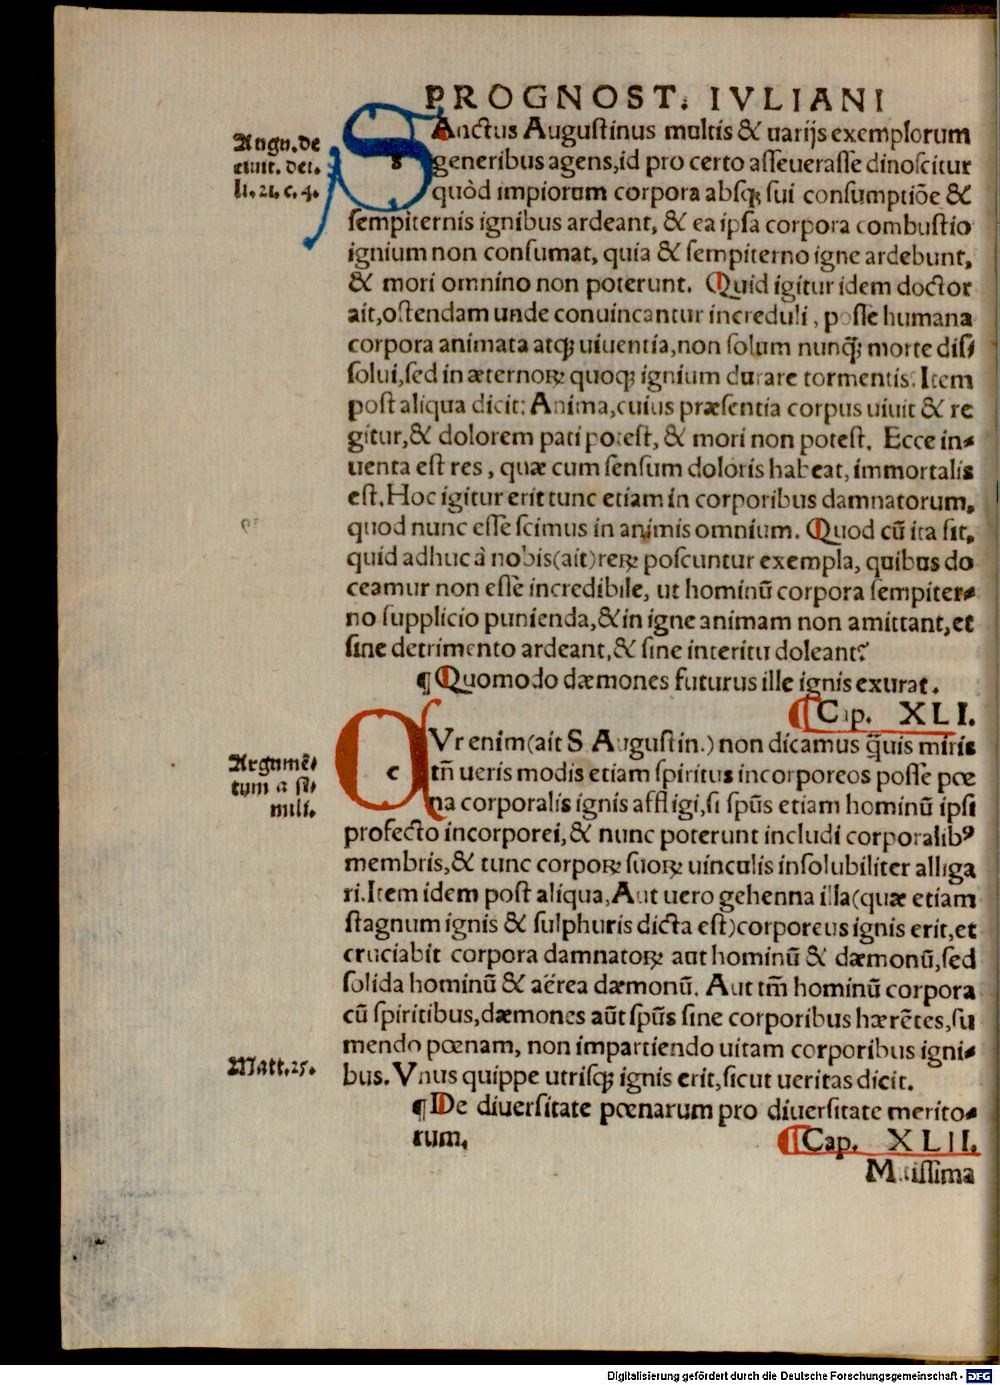 PROGNOST. IVLIANI
Augu. de
ciuit. dei.
li. 21. c. 4.
SAnctus Augustinus multis & uarijs exemplorum
generibus agens, id pro certo asseuerasse dinoscitur
quòd impiorum corpora absqꝫ sui consumptiōe &
sempiternis ignibus ardeant, & ea ipsa corpora combustio
ignium non consumat, quia & sempiterno igne ardebunt,
& mori omnino non poterunt. Quid igitur idem doctor
ait, ostendam unde conuincantur increduli, posse humana
corpora animata atqꝫ uiuentia, non solum nunq̄ꝫ morte dis/
solui, sed in æternoꝝ quoqꝫ ignium durare tormentis. Item
post aliqua dicit: Anima, cuius præsentia corpus uiuit & re
gitur, & dolorem pati potest, & mori non potest. Ecce in⸗
uenta est res, quæ cum sensum doloris habeat, immortalis
est. Hoc igitur erit tunc etiam in corporibus damnatorum,
quod nunc esse scimus in animis omnium. Quod cū ita sit,
quid adhuc à nobis (ait) reꝝ poscuntur exempla, quibus do
ceamur non esse incredibile, ut hominū corpora sempiter⸗
no supplicio punienda, & in igne animam non amittant, et
sine detrimento ardeant, & sine interitu doleant?
¶ Quomodo dæmones futurus ille ignis exurat.
Cap. XLI.
Argumē⸗
tum a si⸗
mili.
CVr enim (ait S. Augustin.) non dicamus q̄uis miris
tn̄ ueris modis etiam spiritus incorporeos posse pœ
na corporalis ignis affligi, si spūs etiam hominū ipsi
profecto incorporei, & nunc poterunt includi corporalibꝰ
membris, & tunc corpoꝝ suoꝝ uinculis insolubiliter alliga
ri. Item idem post aliqua, Aut uero gehenna illa (quæ etiam
stagnum ignis & sulphuris dicta est) corporeus ignis erit, et
cruciabit corpora damnatoꝝ aut hominū & dæmonū, sed
solida hominū & aërea dæmonū. Aut tm̄ hominū corpora
cū spiritibus, dæmones aūt spūs sine corporibus hærētes, su
mendo pœnam, non impartiendo uitam corporibus igni⸗
Matt. 25.
bus. Vnus quippe utrisqꝫ ignis erit, sicut ueritas dicit.
¶ De diuersitate pœnarum pro diuersitate merito⸗
rum. Cap. XLII.
Digitalisierung gefördert durch die Deutsche Forschungsgemeinschaft - DFG